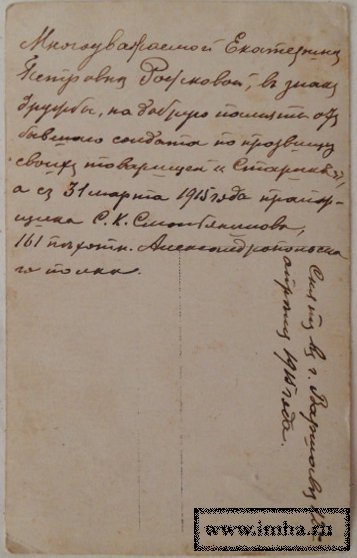 Многоуважаемой Екатерине
Петровне Рожковой, въ знакъ
дружбы, на добрую память отъ
бывшаго солдата по прозвищу
своихъ товарищей „Старикъ“,
а съ 31 марта 1915 года прапор-
щика С. К.
161 пѣхотн. Александропольска
го полка.
Снятъ въ г. Варшавѣ
апрѣля 1915 года.
www.imha.ru